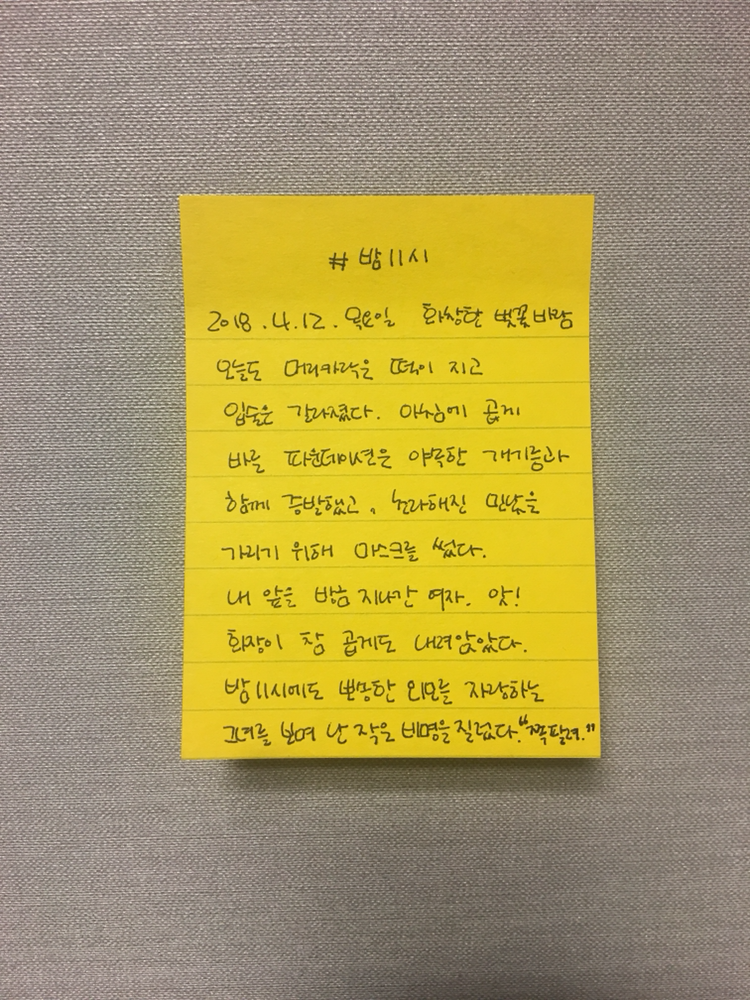 # 밤 11시
2018.4.12. 목요일 화창한 벚꽃바람
오늘도 머리카락은 떡이 지고
입술은 갈라졌다. 아침에 곱게
바른 파운데이션은 야속한 개기름과
함께 증발했고, 초라해진 민낯을
가리기 위해 마스크를 썼다.
내 앞을 방금 지나간 여자. 앗!
화장이 참 곱게도 내려앉았다.
밤 11시에도 뽀송한 외모를 자랑하는
그녀를 보며 난 작은 비명을 질렀다. "쪽팔려."